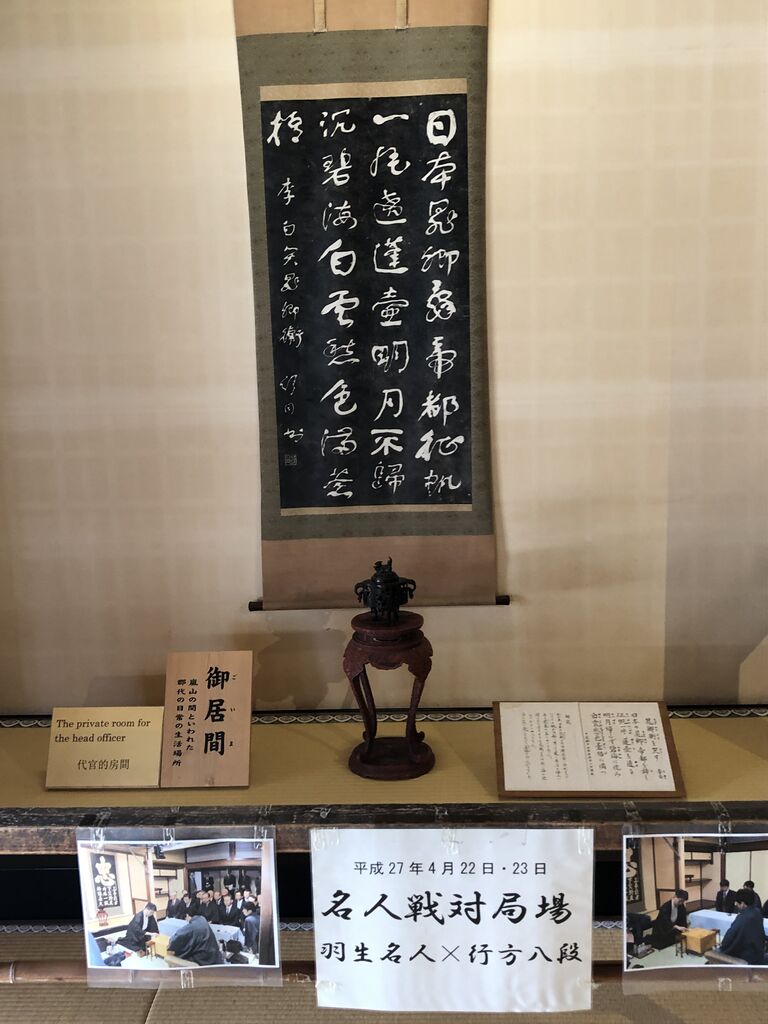 日本晁卿辭帝都征帆
一片遶蓬壺明月不歸
沉碧海白雲愁色滿蒼
梧
李白哭晁卿衡
The private room for
the head officer
代官的房間
御居間
ごいま
嵐山の間といわれた
郡代の日常の生活場所
忠
平成27年4月22日・23日
名人戦対局場
羽生名人×行方八段